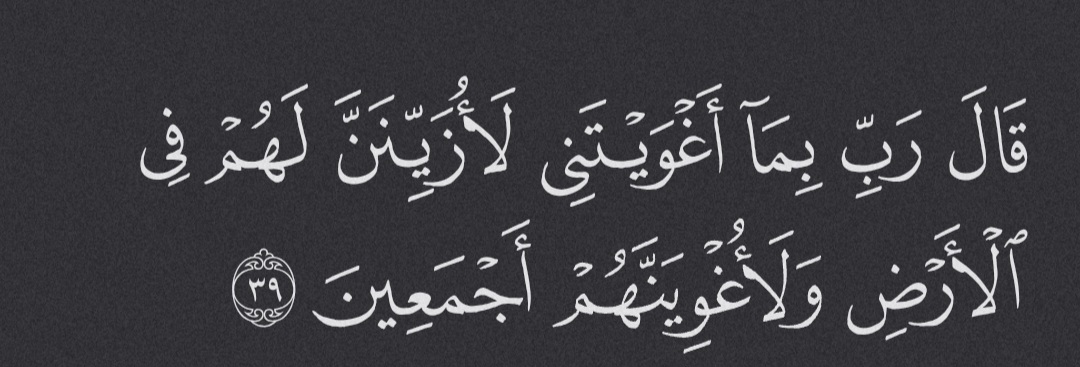 قَالَ رَبِّ بِمَآ أَغْوَيْتَنِى لَأُزَيِّنَنَّ لَهُمْ فِى
ٱلْأَرْضِ وَلَأُغْوِيَنَّهُمْ أَجْمَعِينَ ٣٩